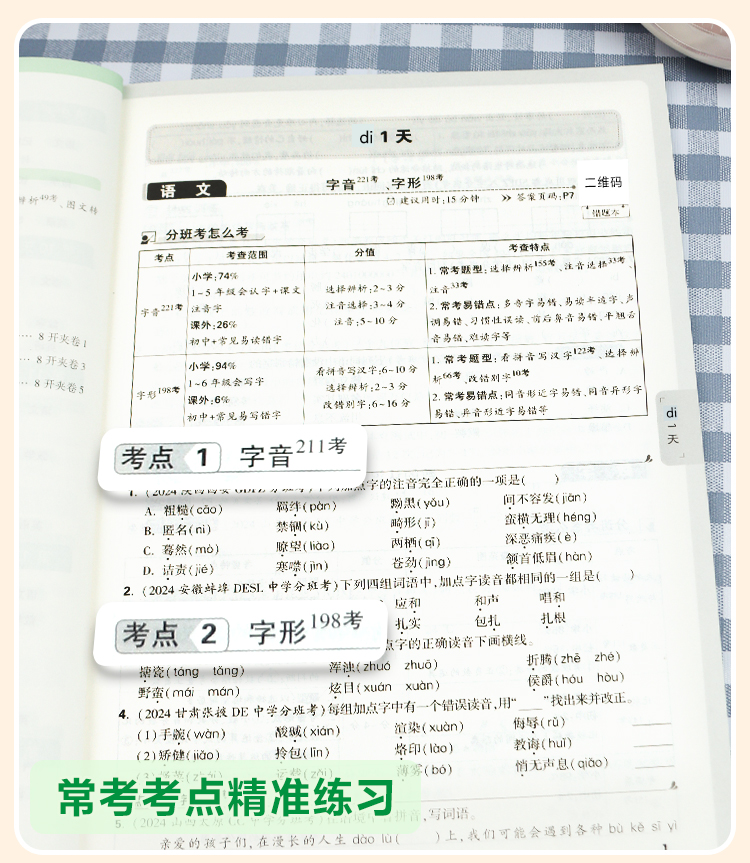 di 1 天
语 文
字音221考、字形198考
建议用时:15 分钟 答案页码:P7
二维码
错题本
辨析49考、图文转
8 开夹卷 1
8 开夹卷 3
8 开夹卷 5
分班考怎么考
考点 考查范围 分值 考查特点
字音221考
小学:74%
1~5 年级会认字+课文
注音字
课外:26%
初中+常见易读错字
选择辨析:2~3 分
注音选择:3~4 分
注音:5~10 分
1. 常考题型:选择辨析155考、注音选择33考、
注音33考
2. 常考易错点:多音字易错、易读半边字、声
调易错、习惯性误读、前后鼻音易错、平翘舌
音易错、难读字等
字形198考
小学:94%
1~6 年级会写字
课外:6%
初中+常见易写错字
看拼音写汉字:6~10 分
选择辨析:2~3 分
改错别字:6~16 分
1. 常考题型:看拼音写汉字122考、选择辨
析66考、改错别字10考
2. 常考易错点:同音形近字易错、同音异形字
易错、异音形近字易错等
di 1 天
考点 1 字音211考
的注音完全正确的一项是( )
A. 粗糙(cāo) 羁绊(pàn) 黝黑(yǒu) 间不容发(jiān)
B. 匿名(nì) 禁锢(kù) 畸形(jī) 蛮横无理(héng)
C. 蓦然(mò) 瞭望(liào) 两栖(qī) 深恶痛疾(è)
D. 诘责(jié) 寒噤(jìn) 苍劲(jìng) 颔首低眉(hàn)
2. (2024 安徽蚌埠 DESL 中学分班考)下列四组词语中,加点字读音都相同的一组是( )
应和 和声 唱和
扎实 包扎 扎根
考点 2 字形198考
点字的正确读音下画横线。
搪瓷(táng tāng) 浑浊(zhuó zhuō) 折腾(zhē zhé)
野蛮(mái mán) 炫目(xuán xuàn) 侯爵(hóu hòu)
4. (2024 甘肃张掖 DE 中学分班考)每组加点字中有一个错误读音,用“____”找出来并改正。
(1)手腕(wàn) 酸碱(xián) 渲染(xuàn) 侮辱(rǔ)
(2)矫健(jiǎo) 拎包(līn) 烙印(lào) 教诲(huǐ)
薄雾(bó) 悄无声息(qiǎo)
常考考点精准练习
拼音,写词语。
亲爱的孩子们,在漫长的人生 dào lù( )上,我们可能会遇到各种 bù kě sī yì